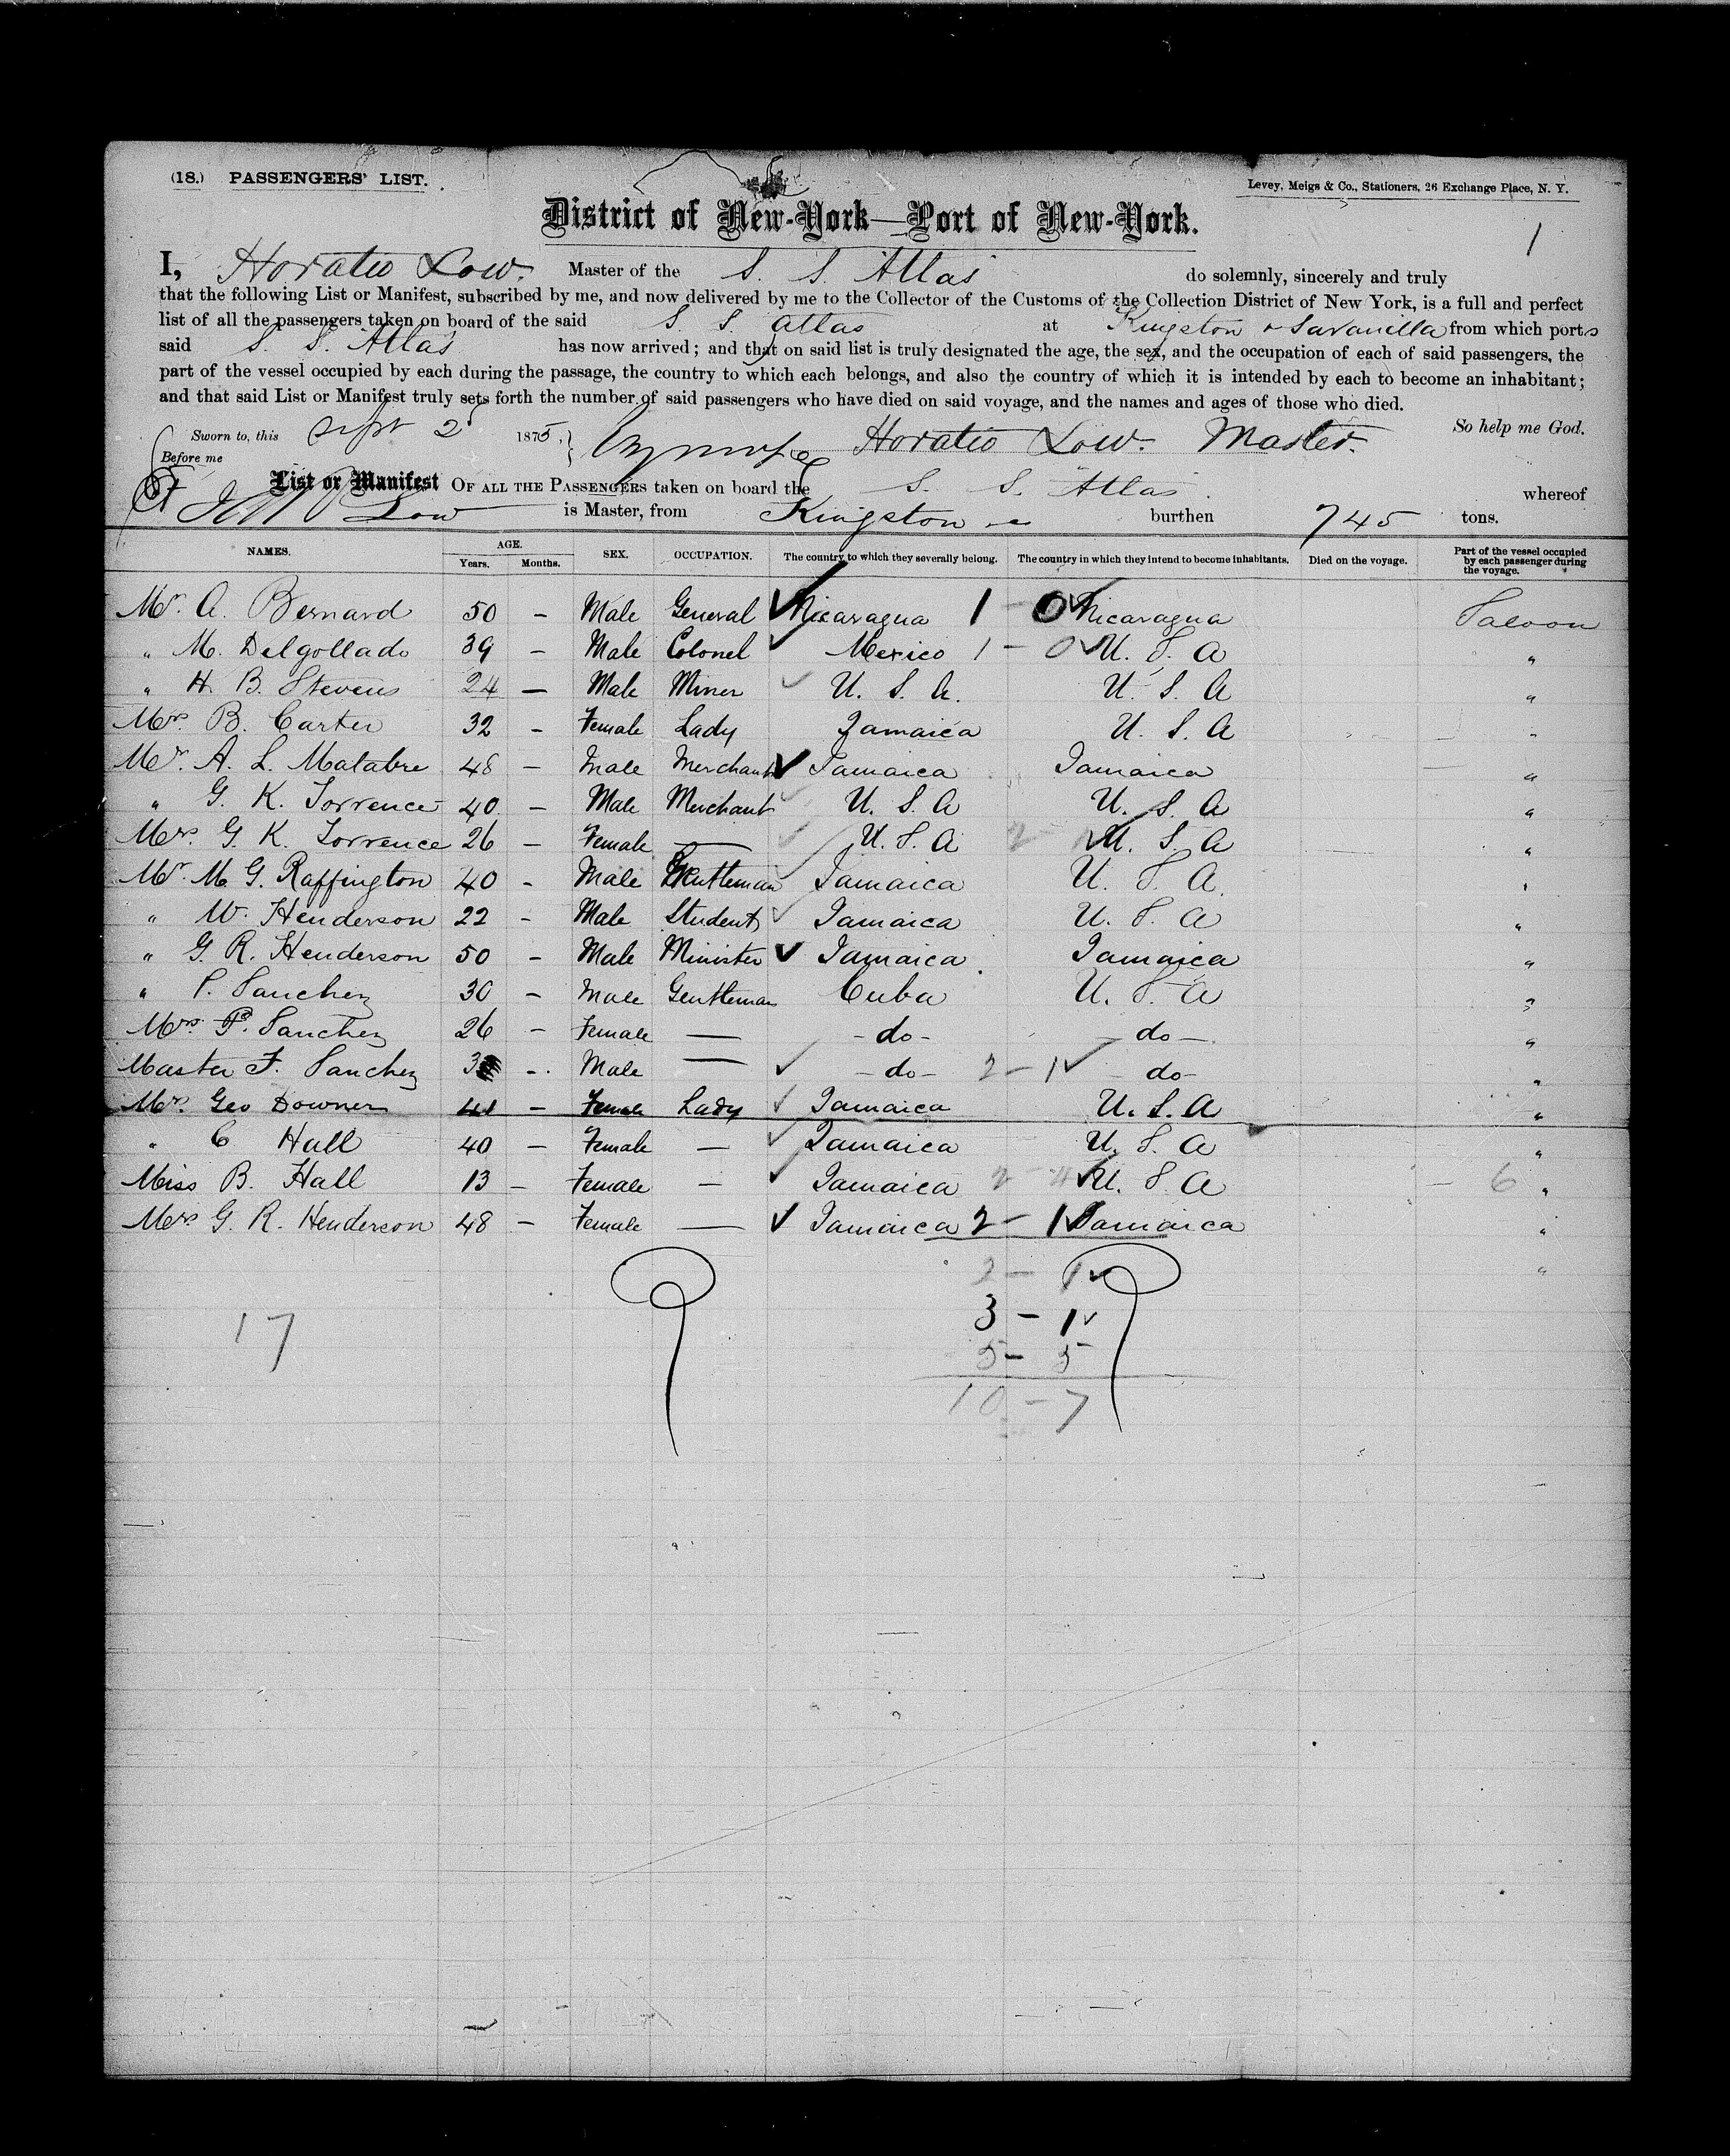 (18.) PASSENGERS' LIST.
Levey, Meigs & Co., Stationers, 26 Exchange Place, N. Y.
District of New-York—Port of New-York.
1
I, Horatio Low. Master of the S. S. Atlas do solemnly, sincerely and truly
that the following List or Manifest, subscribed by me, and now delivered by me to the Collector of the Customs of the Collection District of New York, is a full and perfect
list of all the passengers taken on board of the said S. S. Atlas at Kingston & Savanilla from which ports
said S. S. Atlas has now arrived; and that on said list is truly designated the age, the sex, and the occupation of each of said passengers, the
part of the vessel occupied by each during the passage, the country to which each belongs, and also the country of which it is intended by each to become an inhabitant;
and that said List or Manifest truly sets forth the number of said passengers who have died on said voyage, and the names and ages of those who died.
Sworn to, this Sept 2 1875, Horatio Low. Master. So help me God.
Before me
List or Manifest OF ALL THE PASSENGERS taken on board the S. S. Atlas. whereof
Low is Master, from Kingston burthen 745 tons.
NAMES. AGE. Years. Months. SEX. OCCUPATION. The country to which they severally belong. The country in which they intend to become inhabitants. Died on the voyage. Part of the vessel occupied by each passenger during the voyage.
Mr. A. Bernard 50 – Male General Nicaragua 1 – 0 Nicaragua Saloon
" M. Delgollado 39 – Male Colonel Mexico 1 – 0 U. S. A "
" H. B. Stevens 24 – Male Miner U. S. A. U. S. A "
Mrs. B. Carter 32 – Female Lady Jamaica U. S. A "
Mr. A. L. Malabre 48 – Male Merchant Jamaica Jamaica "
" G. K. Torrence 40 – Male Merchant U. S. A U. S. A "
Mrs. G. K. Torrence 26 – Female — U. S. A 2 – U. S. A "
Mr. M G. Raffington 40 – Male Gentleman Jamaica U. S. A. "
" W. Henderson 22 – Male Student Jamaica U. S. A "
" G. R. Henderson 50 – Male Minister Jamaica. Jamaica "
" P. Sanchez 30 – Male Gentleman Cuba U. S. A "
Mrs. P. Sanchez 26 – Female — -do- -do- "
Master F. Sanchez 3 – Male — -do- 2 – 1 -do- "
Mrs. Geo Downer 41 – Female Lady Jamaica U. S. A "
" C Hall 40 – Female — Jamaica U. S. A "
Miss B. Hall 13 – Female — Jamaica 2 – 4 U. S. A – 6 "
Mrs G. R. Henderson 48 – Female — Jamaica 2 – 1 Jamaica "
2 – 1 "
3 – 1
17
5 – 5
10 – 7